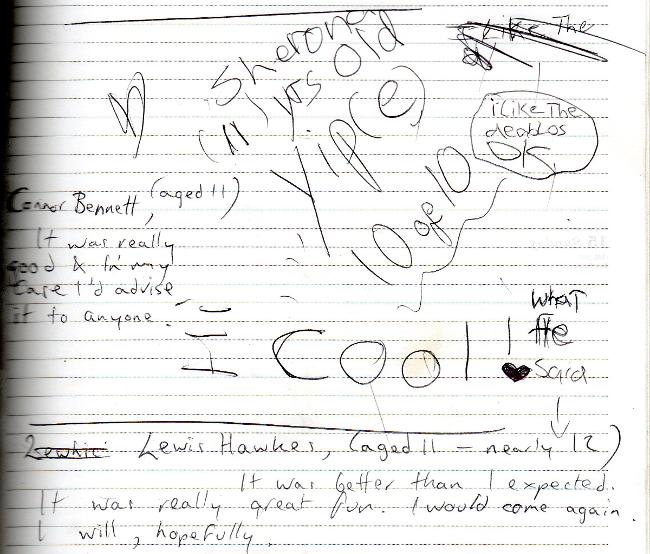 Sherona
(11) yrs Old
Yip(e)
10 of 10
Like The
i Like The
deablos
OK
Connor Bennett, (aged 11)
It was really
good & In my
Case I'd advise
it to anyone.
Cool!
WhAT
Sara
Lewis Hawkes, (aged 11 - nearly 12)
It was better than I expected.
It was really great fun. I would come again.
I will, hopefully.